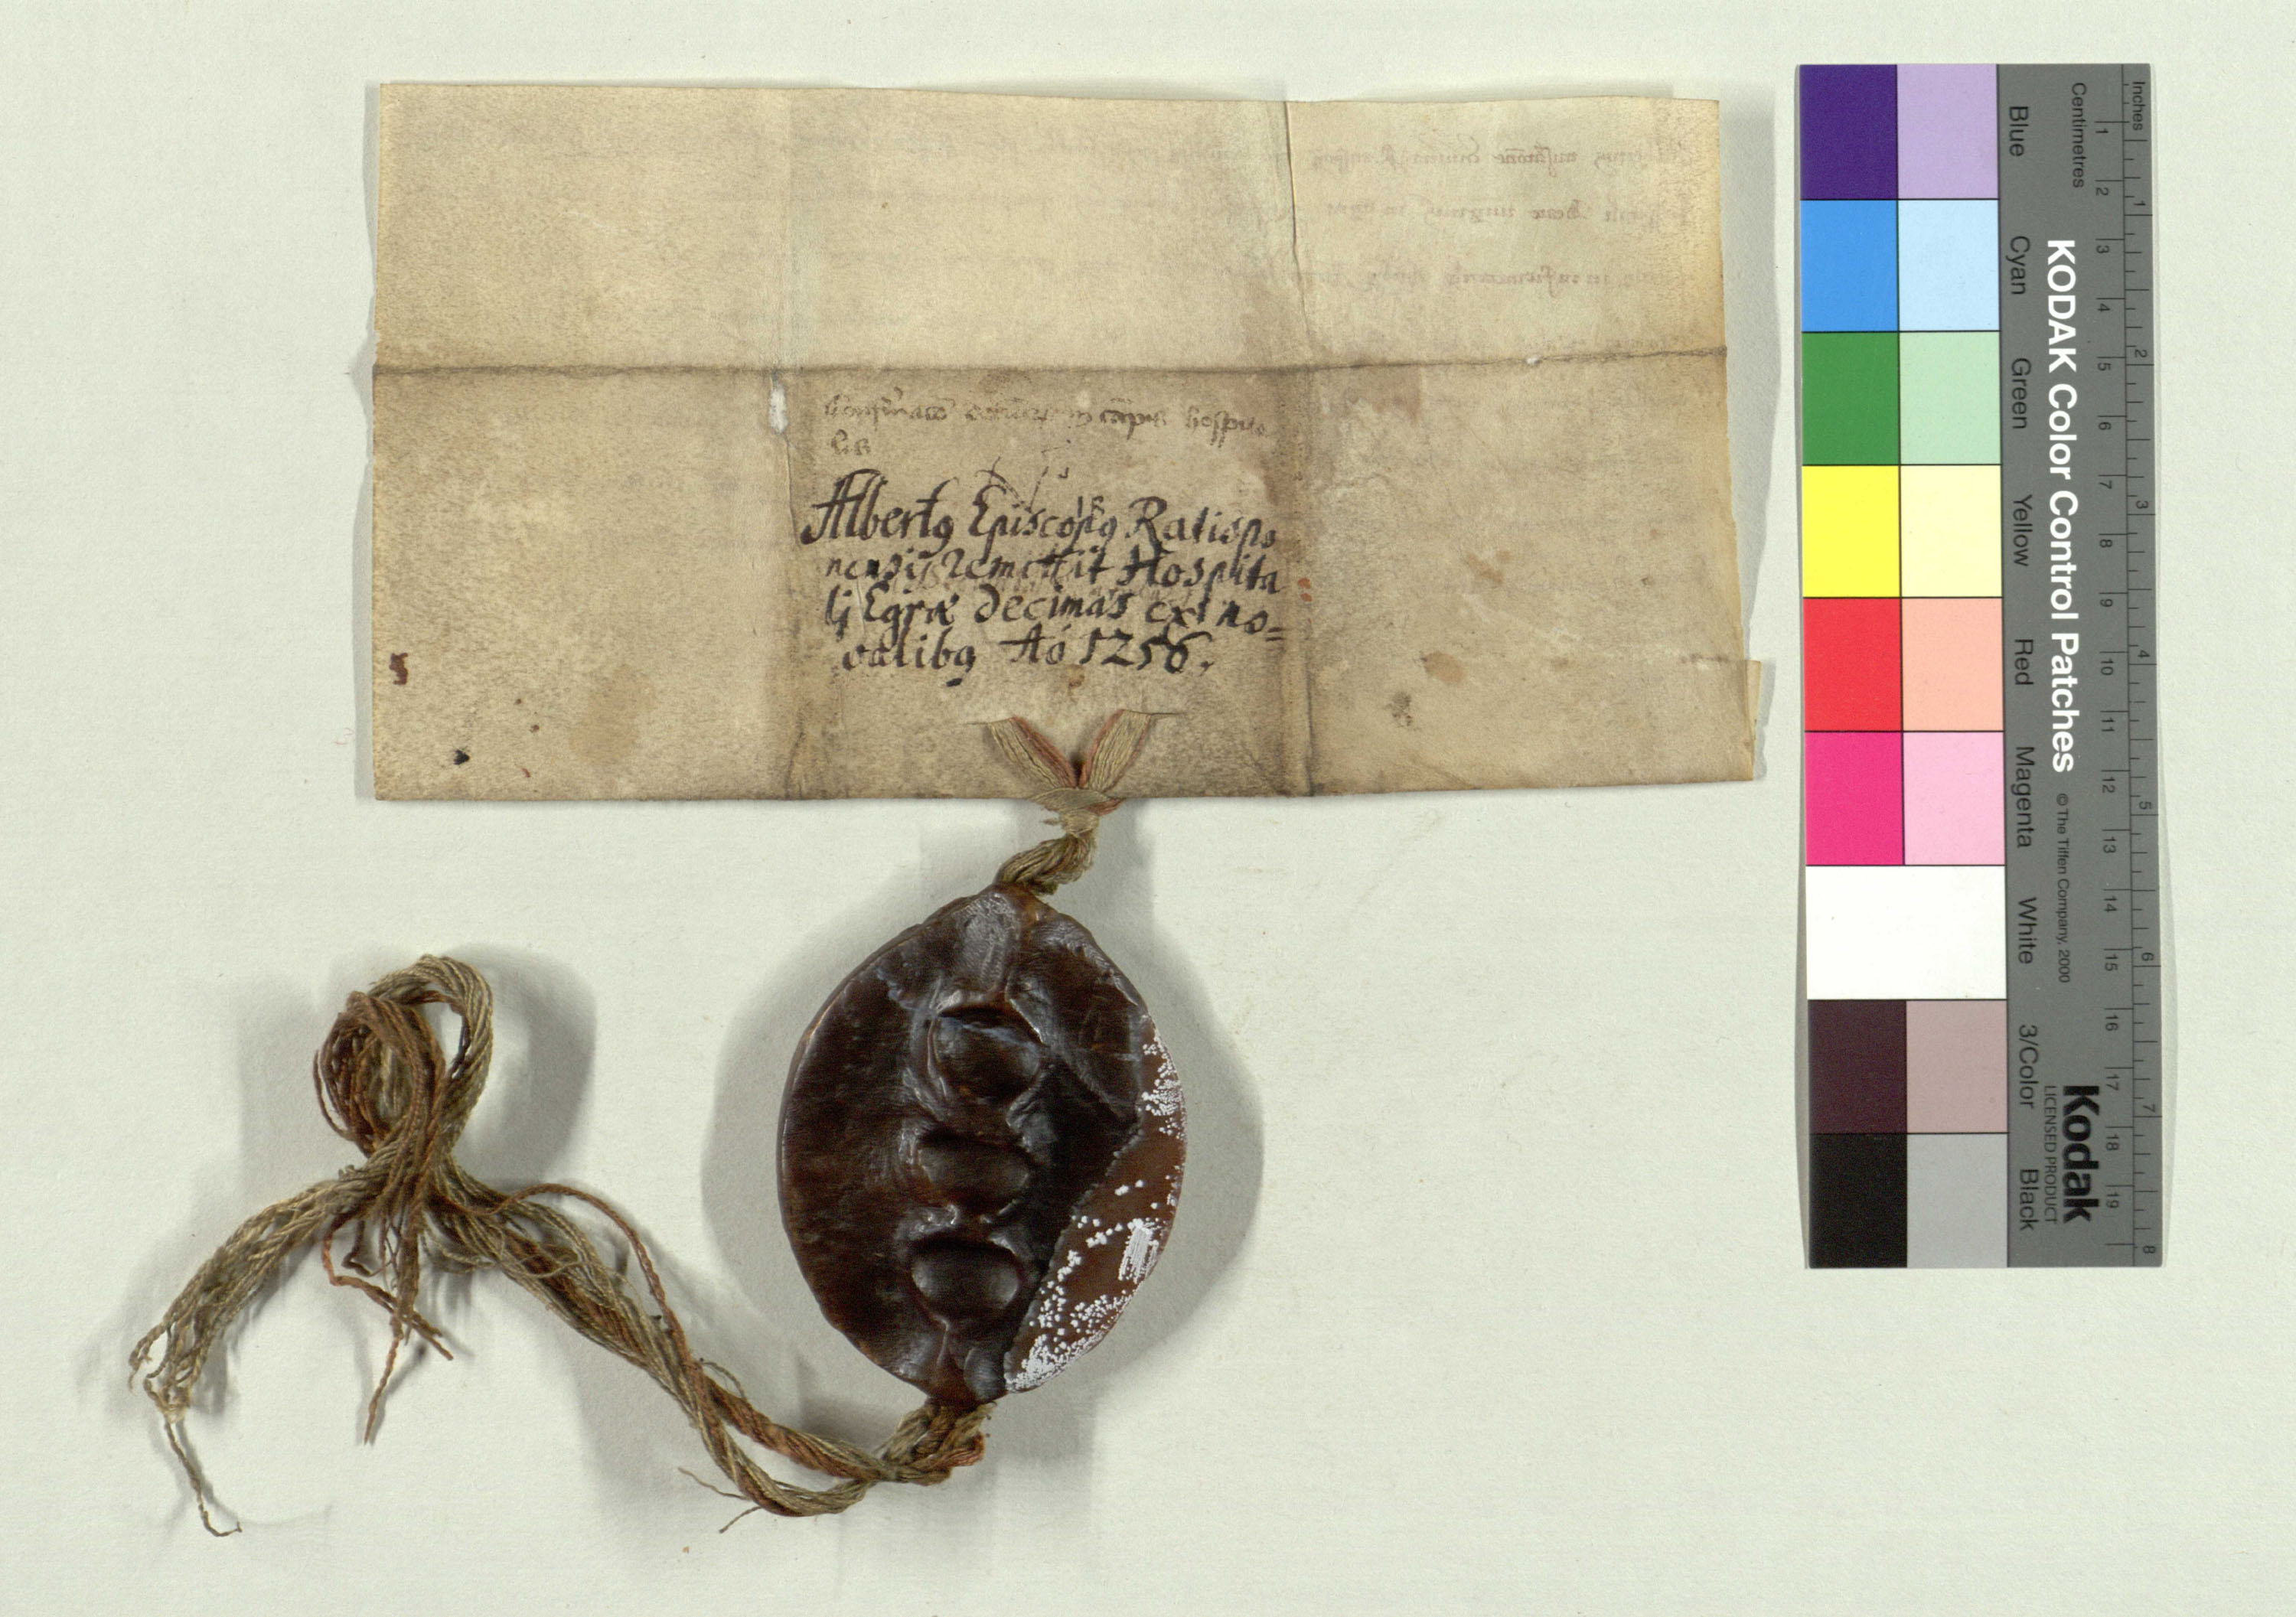 hospita
lis
Albertꝰ Episcopꝰ Ratispo
nensis remittit Hospita
lj Egræ decimas ex no=
valibꝰ Aō 1256.
Inches
Centimetres
1 2 3 4 5 6 7 8
1 2 3 4 5 6 7 8 9 10 11 12 13 14 15 16 17 18 19
KODAK Color Control Patches
© The Tiffen Company, 2000
Kodak
LICENSED PRODUCT
Blue
Cyan
Green
Yellow
Red
Magenta
White
3/Color
Black